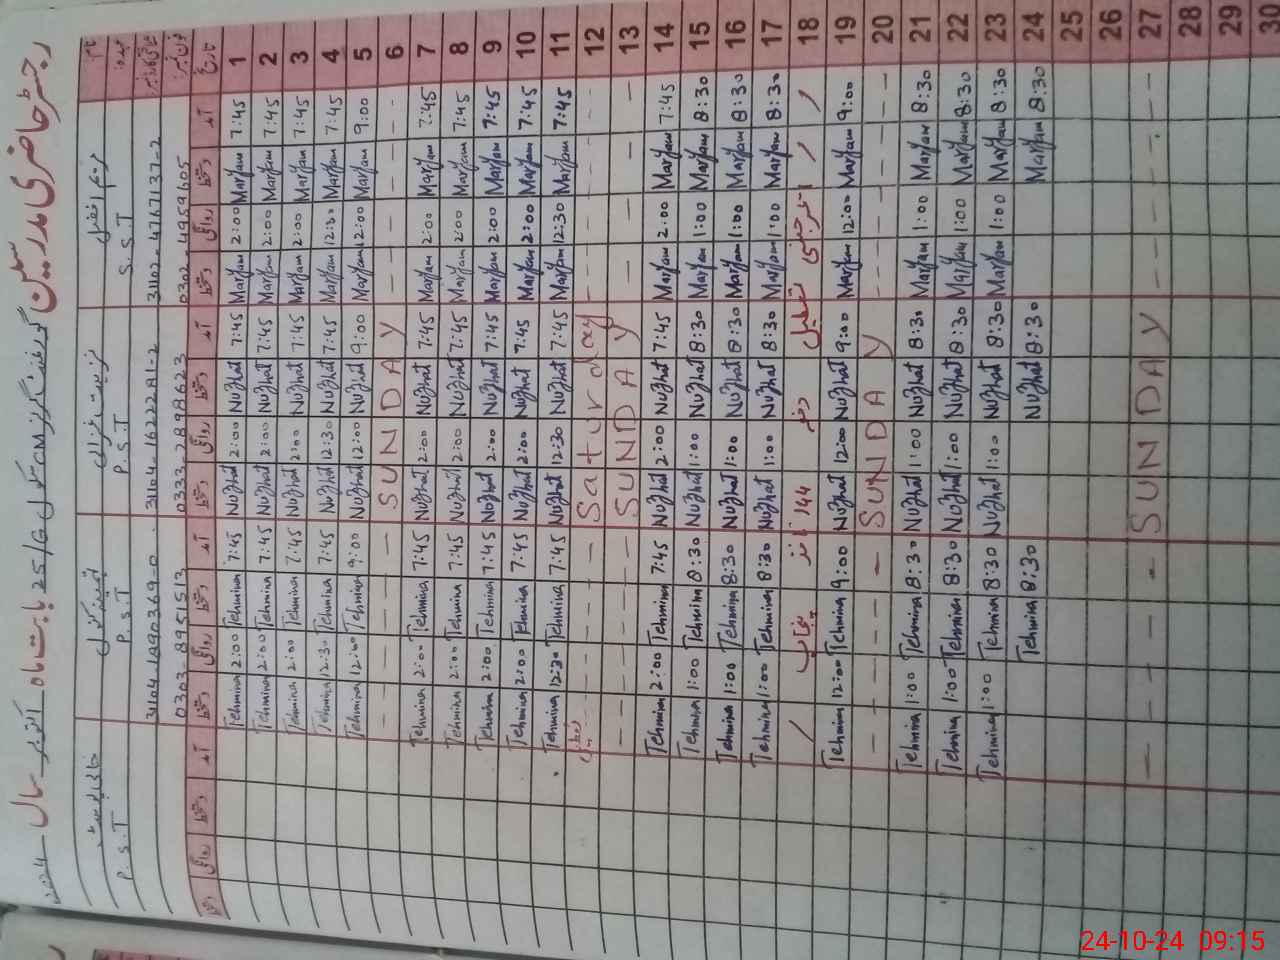 رجسٹر حاضری مدرسین گورنمنٹ گرلز CM سکول 25/G بابت ماہ اکتوبر سال 2024
نام
S.S.T P.S.T P.S.T P.S.T
31102-4767137-2 31104-1622281-2 31104-1890369-0
0302-4959605 0333-2898623 0303-8951513
تاریخ آمد دستخط روانگی دستخط آمد دستخط روانگی دستخط آمد دستخط روانگی دستخط آمد دستخط روانگی دستخط
1 7:45 Maryam 2:00 Maryam 7:45 Nuzhat 2:00 Nuzhat 7:45 Tehmina 2:00 Tehmina
2 7:45 Maryam 2:00 Maryam 7:45 Nuzhat 2:00 Nuzhat 7:45 Tehmina 2:00 Tehmina
3 7:45 Maryam 2:00 Maryam 7:45 Nuzhat 2:00 Nuzhat 7:45 Tehmina 2:00 Tehmina
4 7:45 Maryam 12:30 Maryam 7:45 Nuzhat 12:30 Nuzhat 7:45 Tehmina 12:30 Tehmina
5 9:00 Maryam 12:00 Maryam 9:00 Nuzhat 12:00 Nuzhat 9:00 Tehmina 12:00 Tehmina
6 SUNDAY
7 7:45 Maryam 2:00 Maryam 7:45 Nuzhat 2:00 Nuzhat 7:45 Tehmina 2:00 Tehmina
8 7:45 Maryam 2:00 Maryam 7:45 Nuzhat 2:00 Nuzhat 7:45 Tehmina 2:00 Tehmina
9 7:45 Maryam 2:00 Maryam 7:45 Nuzhat 2:00 Nuzhat 7:45 Tehmina 2:00 Tehmina
10 7:45 Maryam 2:00 Maryam 7:45 Nuzhat 2:00 Nuzhat 7:45 Tehmina 2:00 Tehmina
11 7:45 Maryam 12:30 Maryam 7:45 Nuzhat 12:30 Nuzhat 7:45 Tehmina 12:30 Tehmina
12 Saturday
13 SUNDAY
14 7:45 Maryam 2:00 Maryam 7:45 Nuzhat 2:00 Nuzhat 7:45 Tehmina 2:00 Tehmina
15 8:30 Maryam 1:00 Maryam 8:30 Nuzhat 1:00 Nuzhat 8:30 Tehmina 1:00 Tehmina
16 8:30 Maryam 1:00 Maryam 8:30 Nuzhat 1:00 Nuzhat 8:30 Tehmina 1:00 Tehmina
17 8:30 Maryam 1:00 Maryam 8:30 Nuzhat 1:00 Nuzhat 8:30 Tehmina 1:00 Tehmina
18 تعطیل دفعہ 144 نافذ پنجاب
19 9:00 Maryam 12:00 Maryam 9:00 Nuzhat 12:00 Nuzhat 9:00 Tehmina 12:00 Tehmina
20 SUNDAY
21 8:30 Maryam 1:00 Maryam 8:30 Nuzhat 1:00 Nuzhat 8:30 Tehmina 1:00 Tehmina
22 8:30 Maryam 1:00 Maryam 8:30 Nuzhat 1:00 Nuzhat 8:30 Tehmina 1:00 Tehmina
23 8:30 Maryam 1:00 Maryam 8:30 Nuzhat 1:00 Nuzhat 8:30 Tehmina 1:00 Tehmina
24 8:30 Maryam 8:30 Nuzhat 8:30 Tehmina
25
26
27 SUNDAY
28
29
30
24-10-24 09:15